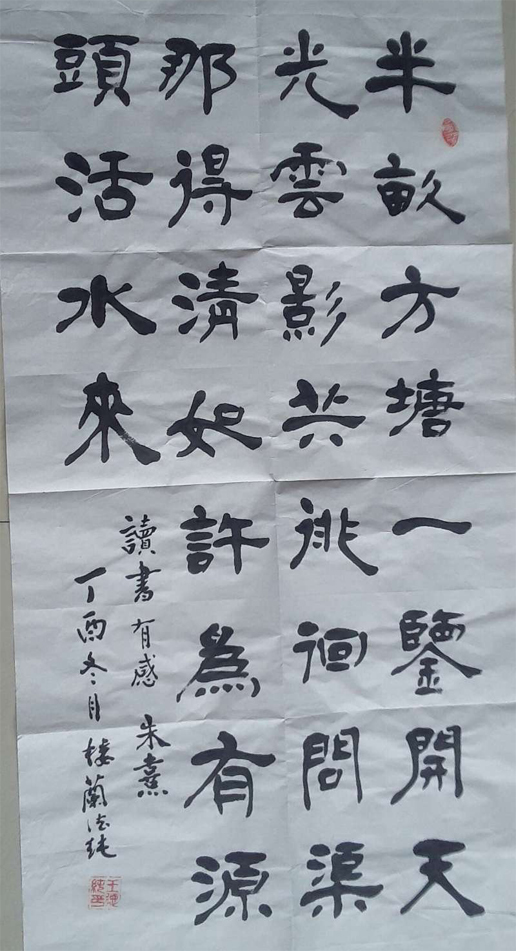 半畝方塘一鑒開天
光雲影共徘徊問渠
那得清如許為有源
頭活水來
讀書有感 朱熹
丁酉冬月 楼蘭